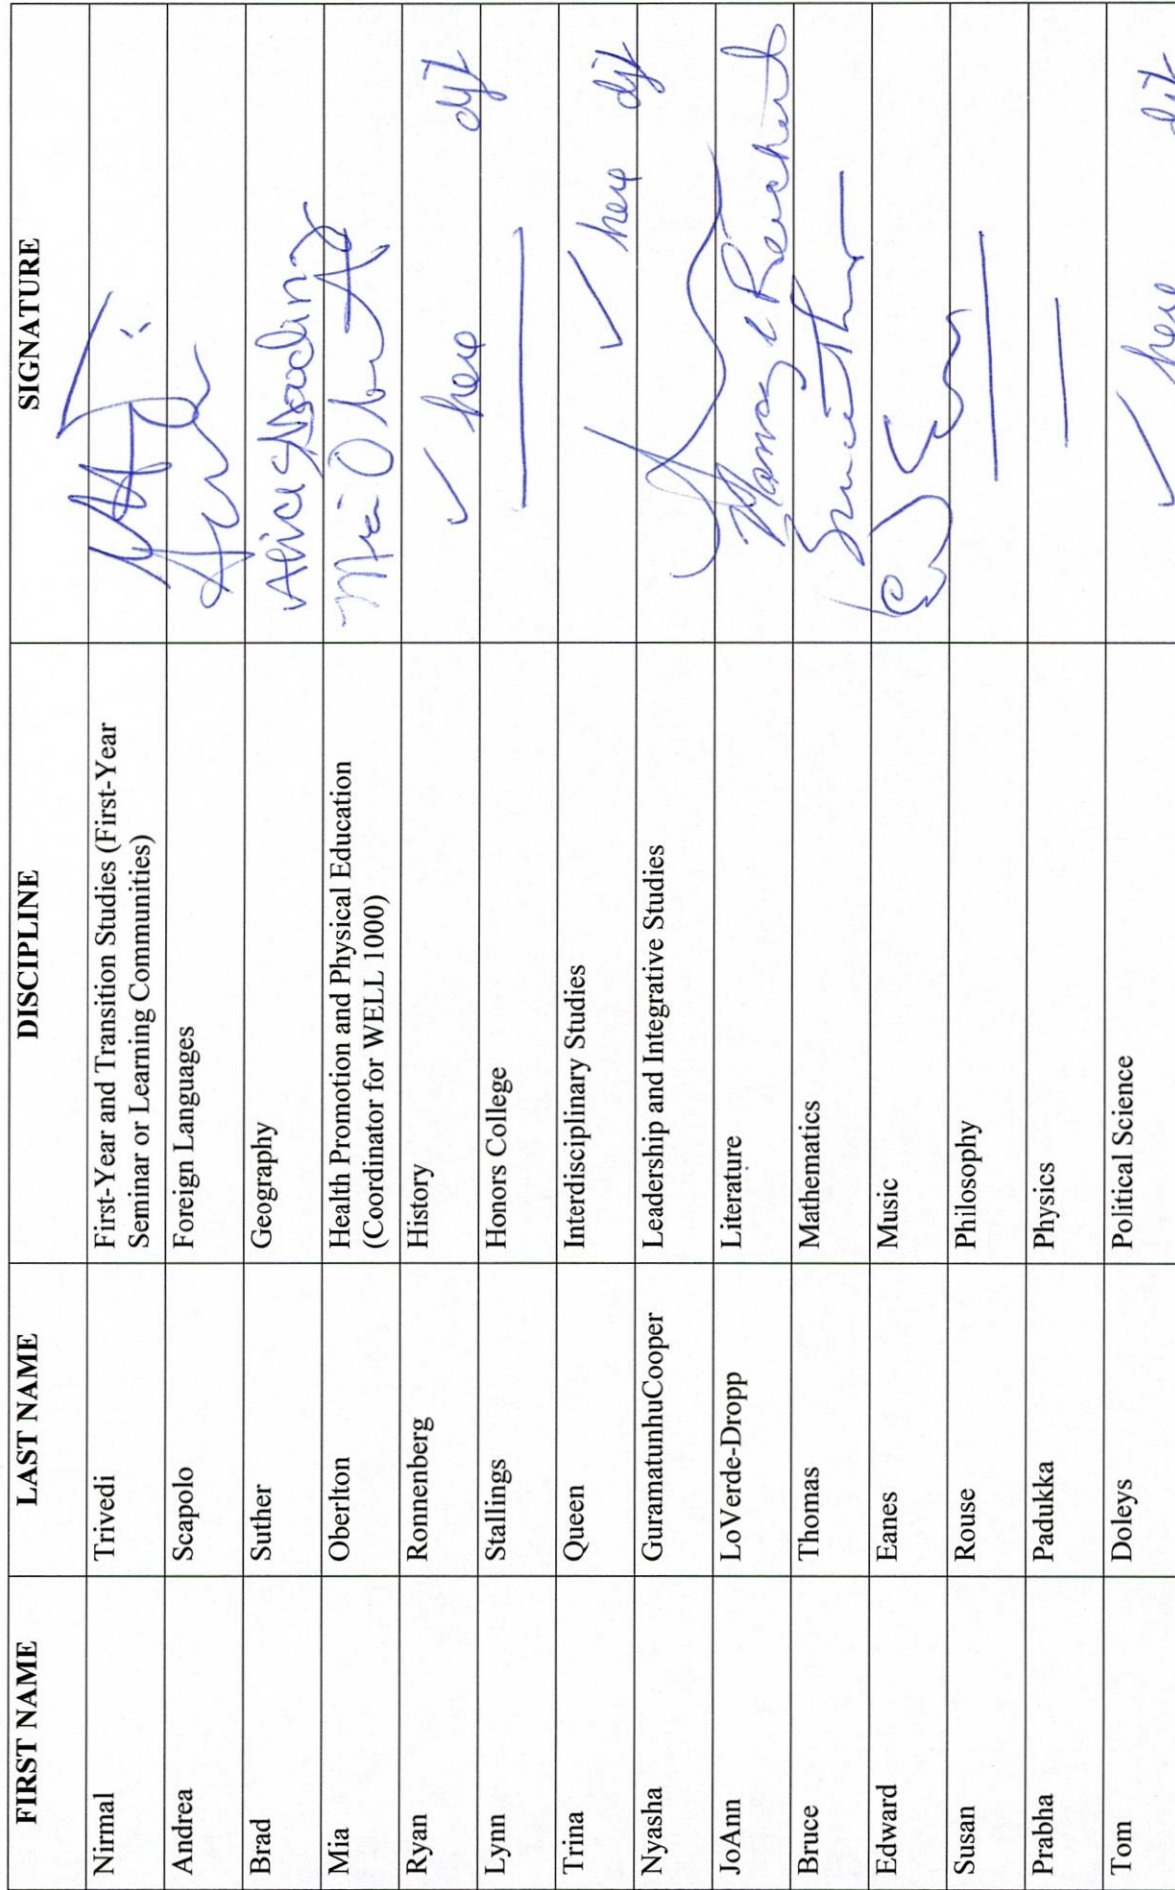 FIRST NAME LAST NAME DISCIPLINE SIGNATURE
Nirmal Trivedi First-Year and Transition Studies (First-Year
Seminar or Learning Communities)
Andrea Scapolo Foreign Languages
Brad Suther Geography
Mia Oberlton Health Promotion and Physical Education
(Coordinator for WELL 1000)
Ryan Ronnenberg History ✓ here djt
Lynn Stallings Honors College
Trina Queen Interdisciplinary Studies ✓ here djt
Nyasha GuramatunhuCooper Leadership and Integrative Studies
JoAnn LoVerde-Dropp Literature
Bruce Thomas Mathematics
Edward Eanes Music
Susan Rouse Philosophy
Prabha Padukka Physics
Tom Doleys Political Science ✓ here djt